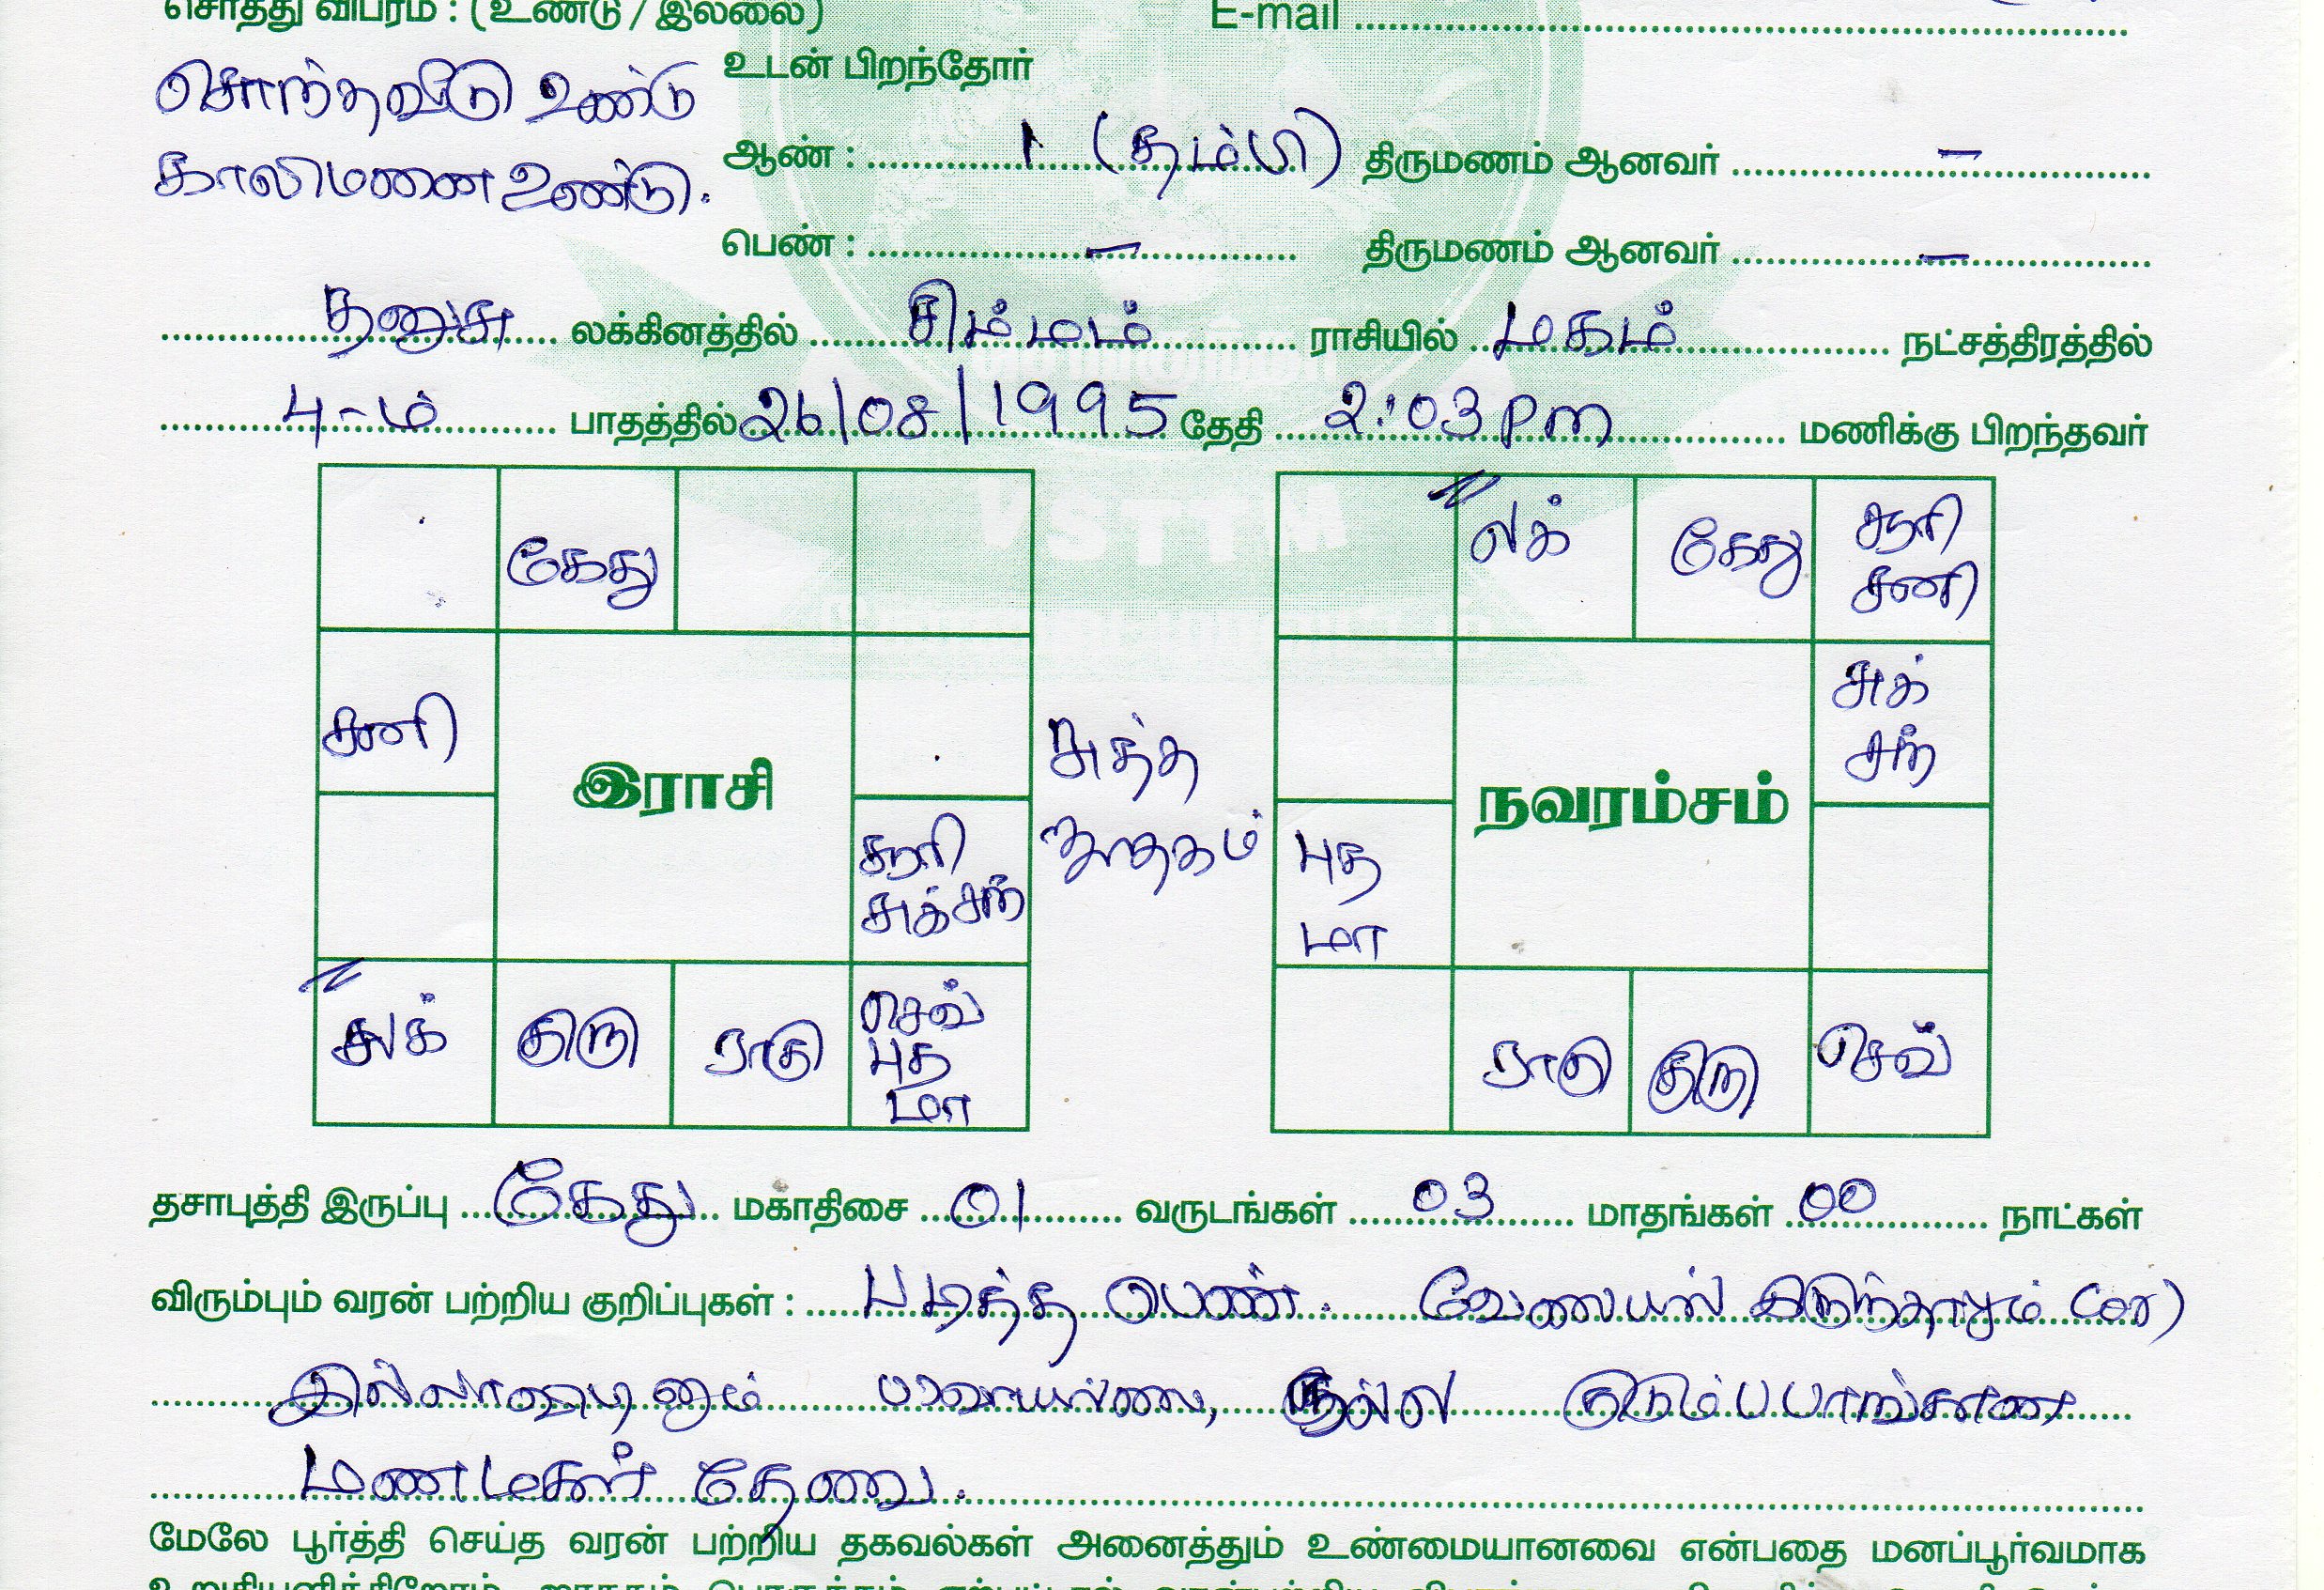 சொத்து விபரம் : (உண்டு / இல்லை) E-mail
சொந்தவீடு உண்டு
உடன் பிறந்தோர்
காலிமனை உண்டு.
ஆண் : 1 (தம்பி) திருமணம் ஆனவர் –
பெண் : – திருமணம் ஆனவர் –
தனுசு லக்கினத்தில் சிம்மம் ராசியில் மகம் நட்சத்திரத்தில்
4-ம் பாதத்தில் 26/08/1995 தேதி 2:03 pm மணிக்கு பிறந்தவர்
VSTTM
கேது
சனி
இராசி
சூரி
சுக் சந்
லக் குரு ராகு செவ்
புத
மா
சுத்த
ஜாதகம்
லக் கேது சூரி
சனி
சுக்
சந்
நவரம்சம்
புத
மா
ராகு குரு செவ்
தசாபுத்தி இருப்பு கேது மகாதிசை 01 வருடங்கள் 03 மாதங்கள் 00 நாட்கள்
விரும்பும் வரன் பற்றிய குறிப்புகள் : படித்த பெண். வேலையில் இருந்தாலும் (or)
இல்லாவிடினும் பரவாயில்லை, நல்ல குடும்பபாங்கான
மணமகள் தேவை.
மேலே பூர்த்தி செய்த வரன் பற்றிய தகவல்கள் அனைத்தும் உண்மையானவை என்பதை மனப்பூர்வமாக